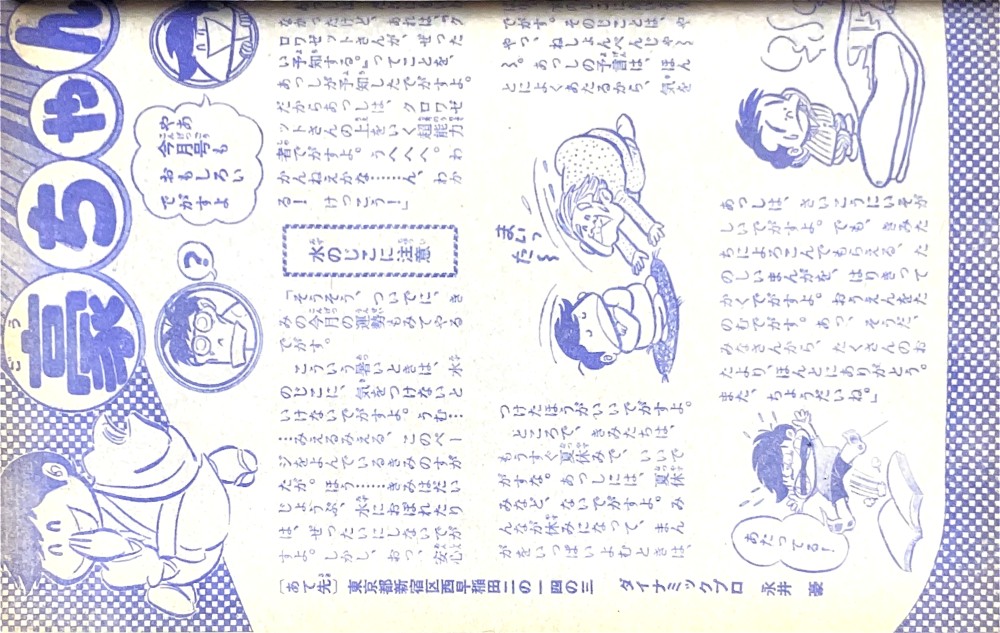 豪ちゃん
ごう
やあ
今月号も
おもしろい
でがすよ
?
なかったけど、あれは、「ク
ロワゼットさんが、ぜった
い予知する。」ってことを、
あっしが予知したでがすよ。
だからあっしは、クロワゼ
ットさんの上をいく超能力
者でがすよ。うへへへ。わ
かんねえかな……ん、わか
る! けっこう!」
水のじこに注意
「そうそう、ついでに、き
みの今月の運勢もみてやる
でがす。
こういう暑いときは、水
のじこに、気をつけないと
いけないでがすよ。うむ…
……みえるみえる、このペー
ジをよんでいるきみのすが
たが。ほう……きみはだい
じょうぶ、水におぼれたり
は、ぜったいにしないでが
すよ。しかし、おっ、安心
でがす。そのじことは、や
やっ、ねしょんべんじゃ〜
〜。あっしの予言は、ほん
とによくあたるから、気を
まいっ
た〜
つけたほうがいいでがすよ。
ところで、きみたちは、
もうすぐ夏休みで、いいで
がすな。あっしには、夏休
みなど、ないでがすよ。み
んなが休みになって、まん
がをいっぱいよむときは、
あっしは、さいこうにいそが
しいでがすよ。でも、きみた
ちによろこんでもらえる、た
のしいまんがを、はりきって
かくでがすよ。おうえんをた
のむでがす。あっ、そうだ、
みなさんから、たくさんのお
たより、ほんとにありがとう。
また、ちょうだいね。」
あたってる!
[あて先] 東京都新宿区西早稲田二の一四の三 ダイナミックプロ 永井 豪